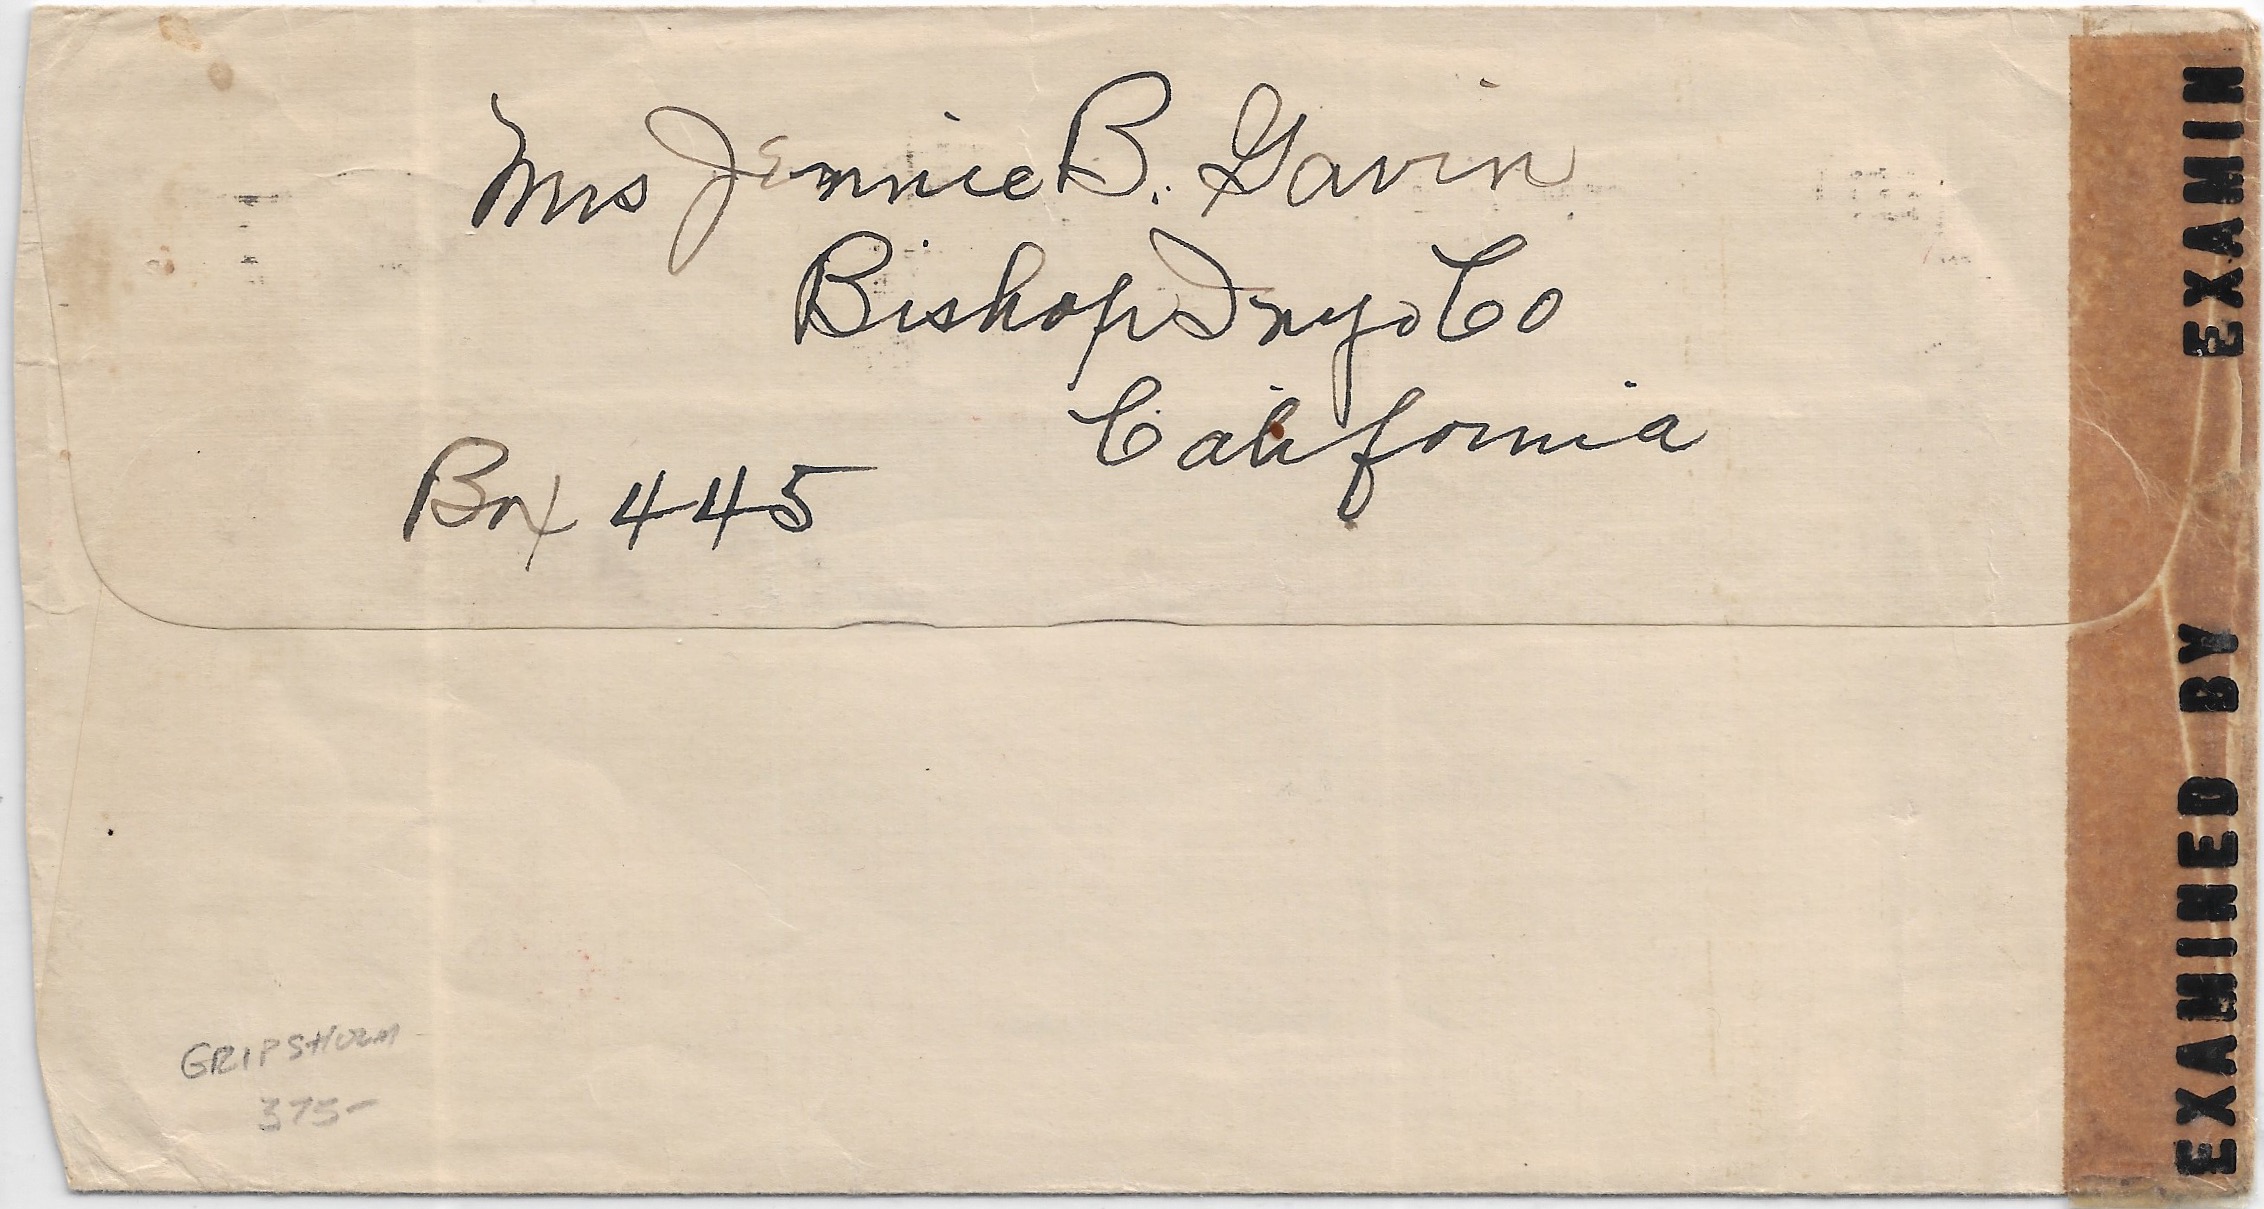 Mrs Jennie B. Gavin
Bishop Inyo Co
California
Box 445
GRIPSHOLM
375-
EXAMINED BY
EXAMIN